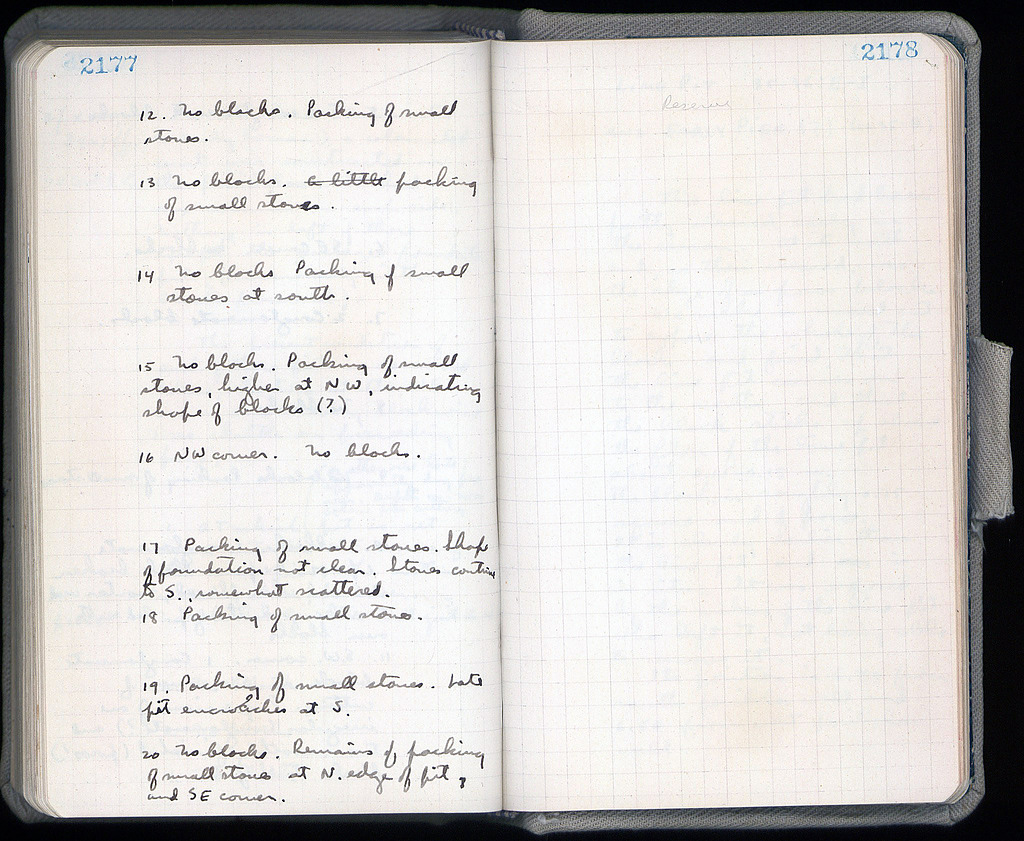 2177
12. No blocks. Packing of small
stones.
13 No blocks. a little packing
of small stones.
14 No blocks Packing of small
stones at south.
15 No blocks. Packing of small
stones, higher at NW, indicating
shape of blocks (?)
16 NW corner. No blocks.
17 Packing of small stones. Shape
of foundation not clear. Stones continue
to S., somewhat scattered.
18 Packing of small stones.
19. Packing of small stones. Late
pit encroaches at S.
20 No blocks. Remains of packing
of small stones at N. edge of pit,
and SE corner.
2178
Reserve